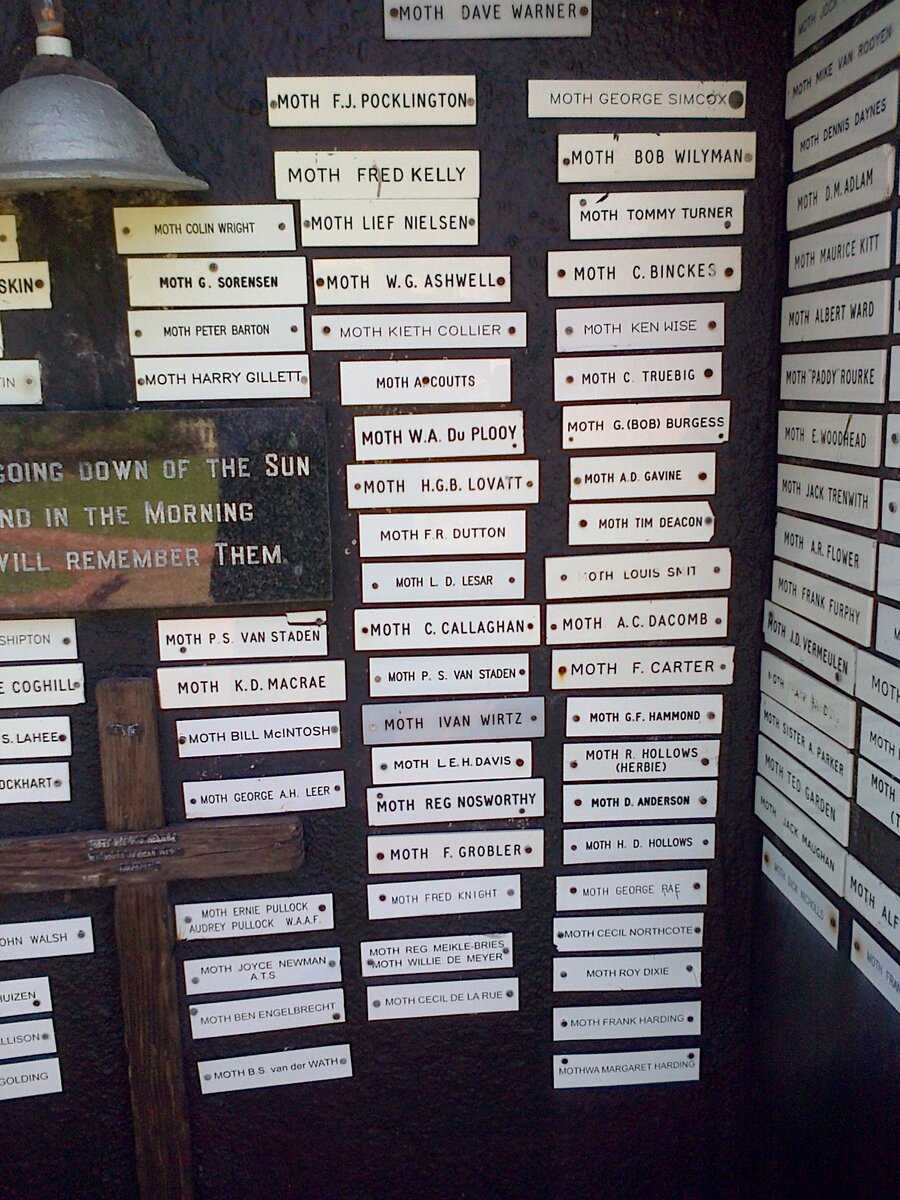 MOTH DAVE WARNER
MOTH F.J. POCKLINGTON
MOTH FRED KELLY
MOTH COLIN WRIGHT
MOTH LIEF NIELSEN
SKIN
MOTH G. SORENSEN
MOTH W.G. ASHWELL
MOTH PETER BARTON
MOTH KIETH COLLIER
TIN
MOTH HARRY GILLETT
MOTH A. COUTTS
MOTH W.A. DU PLOOY
MOTH H.G.B. LOVATT
MOTH F.R. DUTTON
MOTH L. D. LESAR
MOTH C. CALLAGHAN
MOTH P. S. VAN STADEN
MOTH IVAN WIRTZ
MOTH L.E.H. DAVIS
MOTH REG NOSWORTHY
MOTH F. GROBLER
MOTH FRED KNIGHT
MOTH REG MEIKLE-BRIES
MOTH WILLIE DE MEYER
MOTH CECIL DE LA RUE
GOING DOWN OF THE SUN
ND IN THE MORNING
WILL REMEMBER THEM
SHIPTON
E COGHILL
S. LAHEE
OCKHART
OHN WALSH
HUIZEN
LLISON
GOLDING
MOTH P.S. VAN STADEN
MOTH K.D. MACRAE
MOTH BILL McINTOSH
MOTH GEORGE A.H. LEER
MOTH ERNIE PULLOCK
AUDREY PULLOCK W.A.A.F.
MOTH JOYCE NEWMAN
A.T.S
MOTH BEN ENGELBRECHT
MOTH B.S. van der WATH
MOTH GEORGE SIMCOX
MOTH BOB WILYMAN
MOTH TOMMY TURNER
MOTH C. BINCKES
MOTH KEN WISE
MOTH C. TRUEBIG
MOTH G.(BOB) BURGESS
MOTH A.D. GAVINE
MOTH TIM DEACON
MOTH LOUIS SMIT
MOTH A.C. DACOMB
MOTH F. CARTER
MOTH G.F. HAMMOND
MOTH R. HOLLOWS
(HERBIE)
MOTH D. ANDERSON
MOTH H. D. HOLLOWS
MOTH GEORGE RAE
MOTH CECIL NORTHCOTE
MOTH ROY DIXIE
MOTH FRANK HARDING
MOTHWA MARGARET HARDING
MOTH JOCK
MOTH MIKE VAN ROOYEN
MOTH DENNIS DAYNES
MOTH D.M. ADLAM
MOTH MAURICE KITT
MOTH ALBERT WARD
MOTH "PADDY" ROURKE
MOTH E. WOODHEAD
MOTH JACK TRENWITH
MOTH A.R. FLOWER
MOTH FRANK FURPHY
MOTH J.D. VERMEULEN
MOTH
MOTH SISTER A. PARKER
MOTH TED GARDEN
MOTH JACK MAUGHAN
MOTH DICK NICHOLLS
MOTH
MOTH
MOTH ALF
MOTH FRAN